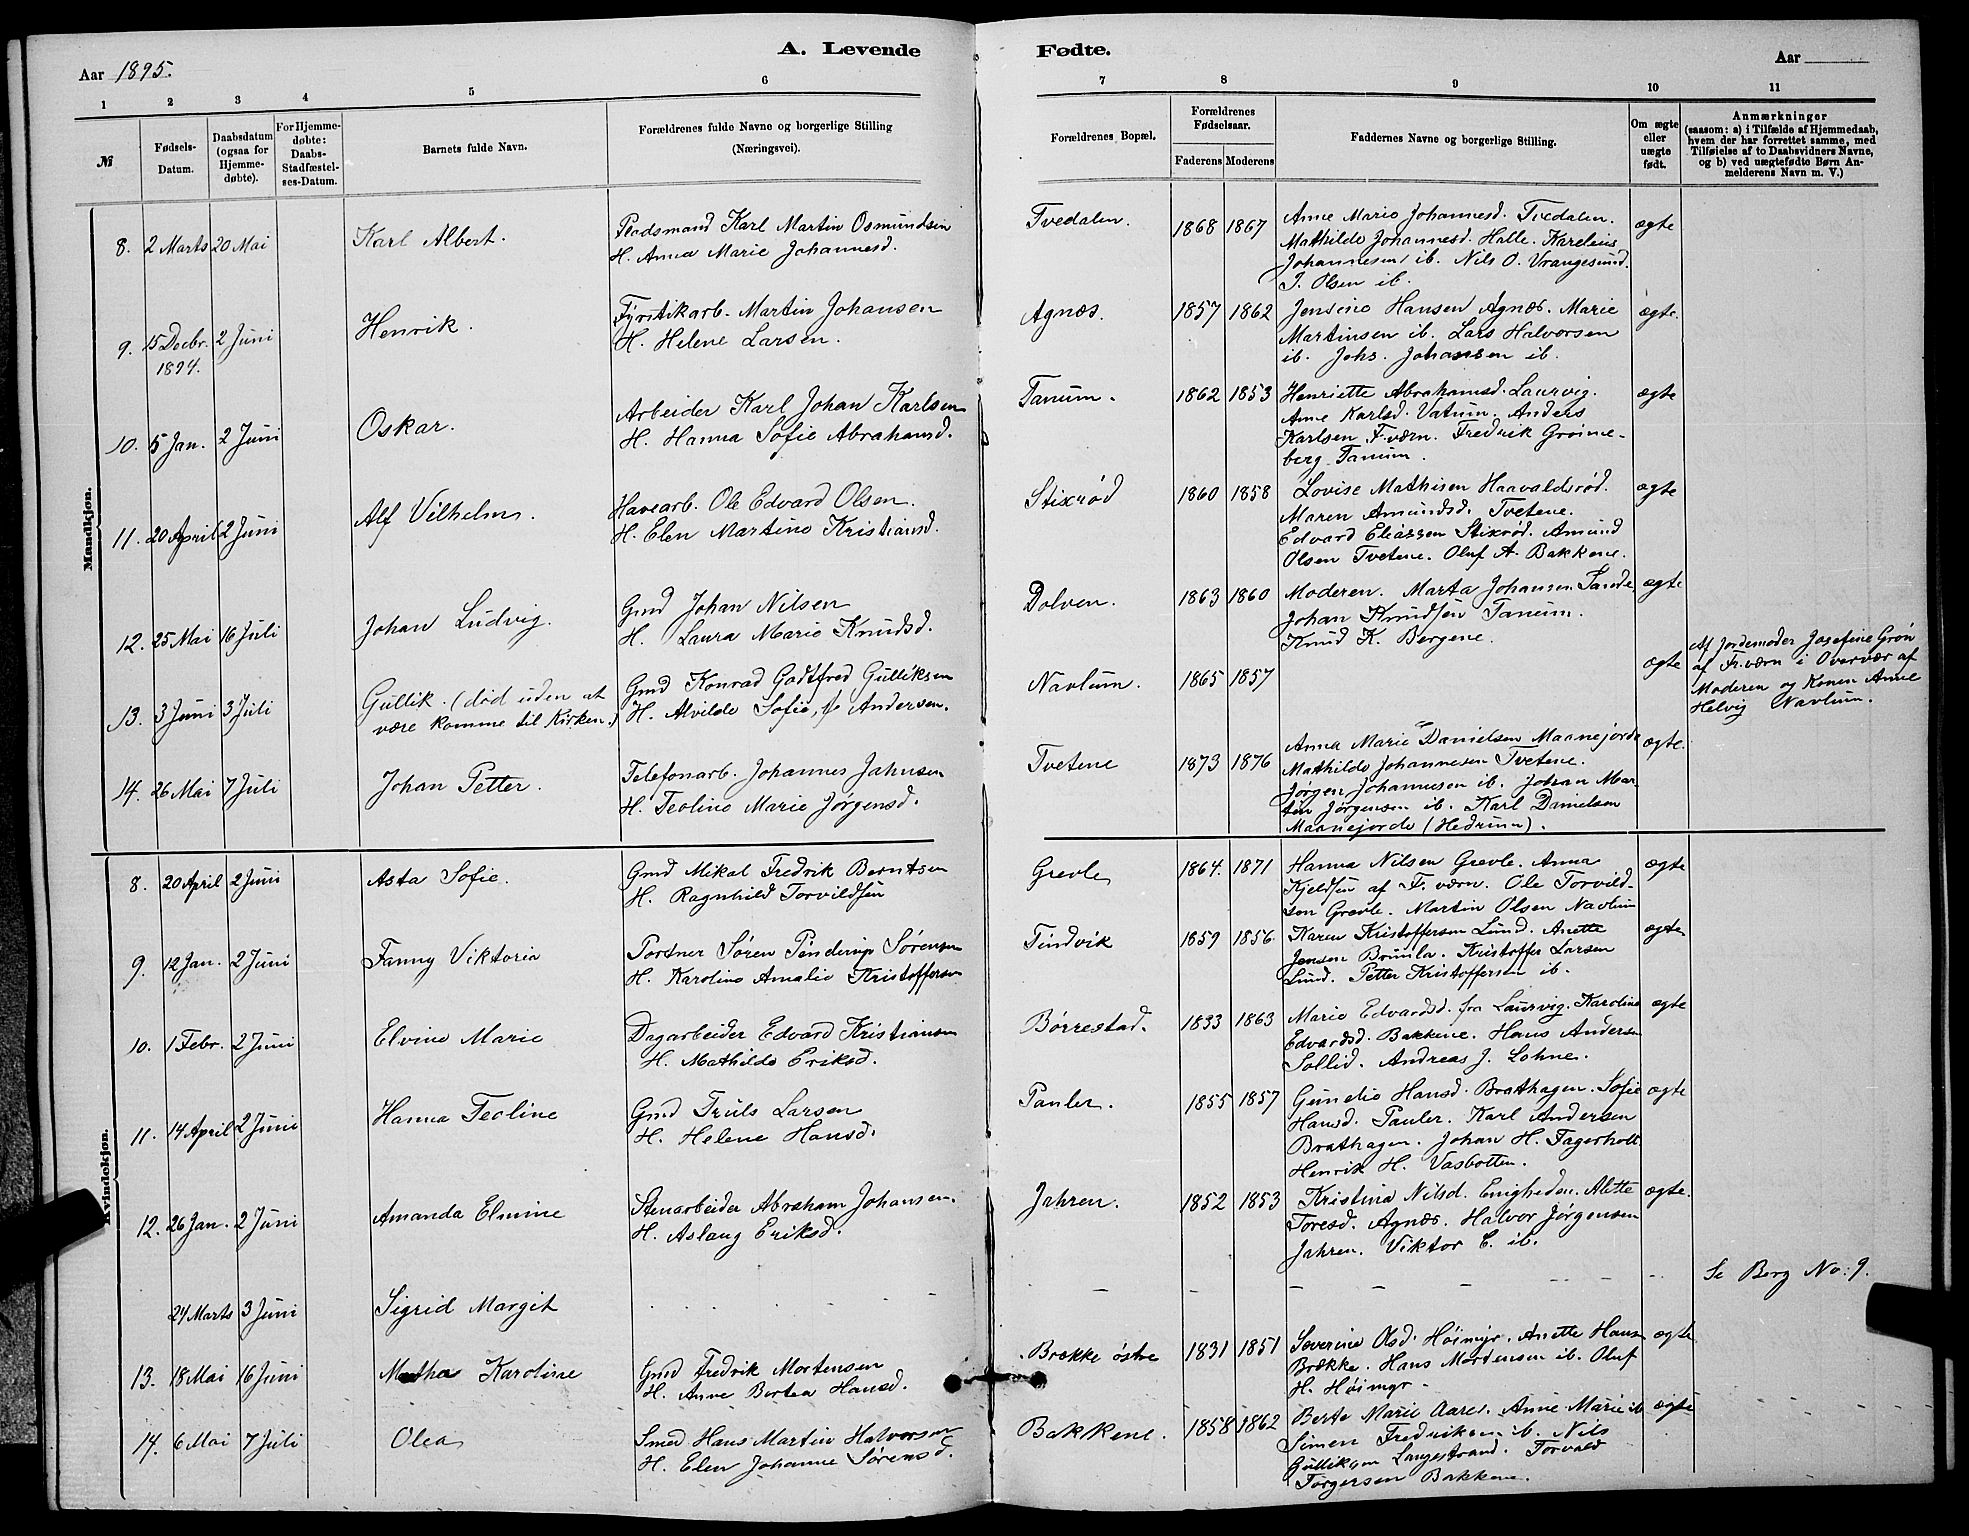 A. Levende Fødte.
Aar 1895.
Aar
1 2 3 4 5 6 7 8 9 10 11
№
Fødsels-Datum.
Daabsdatum (ogsaa for Hjemme-døbte).
For Hjemme-døbte: Daabs-Stadfæstel-ses-Datum.
Barnets fulde Navn.
Forældrenes fulde Navne og borgerlige Stilling (Næringsvei).
Forældrenes Bopæl.
Forældrenes Fødselsaar.
Faderens Moderens
Faddernes Navne og borgerlige Stilling.
Om ægte eller uægte født.
Anmærkninger (saasom: a) i Tilfælde af Hjemmedaab, hvem der har forrettet samme, med Tilføielse af to Daabsvidners Navne, og b) ved uægtefødte Børn Anmelderens Navn m. V.)
Mandkjøn.
8. 2 Marts 20 Mai Karl Albert. Pladsmand Karl Martin Osmundsen
H. Anna Marie Johannesd.
Tvedalen. 1868 1867 Anne Marie Johannesd. Tvedalen. ægte
Mathilde Johannesd. Halle. Karelius
Johannesen ib. Nils O. Vrangesund.
J. Olsen ib.
9. 15 Decbr. 1894. 2 Juni Henrik. Fyrstikarb. Martin Johansen
H. Helene Larsen.
Agnæs. 1857 1862 Jensine Hansen Agnæs. Marie ægte.
Martinsen ib. Lars Halvorsen
ib. Johs. Johansen ib.
10. 5 Jan. 2 Juni Oskar. Arbeider Karl Johan Karlsen
H. Hanna Sofie Abrahamsd.
Tanum. 1862 1853 Henriette Abrahamsd. Laurvig. ægte
Anne Karlsd. Vatum. Anders
Karlsen F.værn. Fredrik Grønne-
berg Tanum.
11. 20 April 2 Juni Alf Vilhelm. Havearb. Ole Edvard Olsen.
H. Elen Martine Kristiansd.
Stixrød 1860 1858 Lovise Mathisen Haavaldsrød. ægte
Maren Amundsd. Tvetene.
Edvard Eliassen Stixrød. Amund
Olsen Tvetene. Oluf A. Bakkene.
12. 25 Mai 16 Juli Johan Ludvig. Gmd Johan Nilsen
H. Laura Marie Knudsd.
Dolven. 1863 1860 Moderen. Marta Johansen Sande ægte
Johan Knudsen Tanum.
Knud K. Bergene.
13. 3 Juni 3 Juli Gullik. (død uden at
være komme til Kirken.)
Gmd Konrad Godtfred Gulliksen
H. Alvilde Sofie, f. Andersen.
Navlum. 1865 1857 ægte
Af Jordemoder Josefine Grøn
af Fr.værn i Overvær af
Moderen og Konen Anne
Helvig Navlum.
14. 26 Mai 7 Juli Johan Petter. Telefonarb. Johannes Jahnsen
H. Teoline Marie Jørgensd.
Tvetene 1873 1876 Anna Marie Danielsen Maanejorde ægte.
Mathilde Johannesen Tvetene.
Jørgen Johannesen ib. Johan Mar-
tin Jørgensen ib. Karl Danielsen
Maanejorde (Hedrum).
Kvindekjøn.
8. 20 April 2 Juni Asta Sofie. Gmd Mikal Fredrik Berntsen
H. Ragnhild Torvildsen
Grevle 1864. 1871 Hanna Nilsen Grevle. Anna ægte
Kjeldsen af F.værn. Ole Torvild-
sen Grevle. Martin Olsen Navlum
9. 12 Jan. 2 Juni Fanny Viktoria Portner Søren Penderup Sørensen
H. Karoline Amalie Kristoffersen
Tindvik 1859 1856. Karen Kristoffersen Lund. Anette ægte
Jensen Brunla. Kristoffer Larsen
Lund. Petter Kristoffersen ib.
10. 1 Febr. 2 Juni Elvine Marie Dagarbeider Edvard Kristiansen
H. Mathilde Eriksd.
Børrestad. 1833 1863 Marie Edvardsd. fra Laurvig. Karoline ægte
Edvardsd. Bakkene. Hans Andersen
Sollid. Andreas J. Lohne.
11. 14 April 2 Juni Hanna Teoline Gmd Truls Larsen
H. Helene Hansd.
Pauler. 1855 1857 Gunelie Hansd. Brathagen. Sofie ægte
Hansd. Pauler. Karl Andersen
Brathagen. Johan H. Fagerholt
Henrik H. Vasbotten.
12. 26 Jan. 2 Juni Amanda Elmine Stenarbeider Abraham Johansen.
H. Aslaug Eriksd.
Jahren. 1852 1853 Kristina Nilsd. Enigheden. Alette ægte.
Toresd. Agnæs. Halvor Jørgensen
Jahren. Viktor E. ib.
24 Marts 3 Juni Sigrid Margit
Se Berg No: 9.
13. 18 Mai 16 Juni Martha Karoline Gmd Fredrik Mortensen
H. Anne Bertea Hansd.
Brække østre 1831 1851 Severine Olsd. Høimyr. Anette Hansen ægte
Brække. Hans Mortensen ib. Oluf
H. Høimyr.
14. 6 Mai 7 Juli Olea Smed Hans Martin Halvorsen
H. Elen Johanne Sørensd.
Bakkene. 1858 1862 Berte Marie Aares. Anne Marie ib ægte
Simen Fredriksen ib. Nils
Gulliksen Langestrand. Torvald
Torgersen Bakkene.